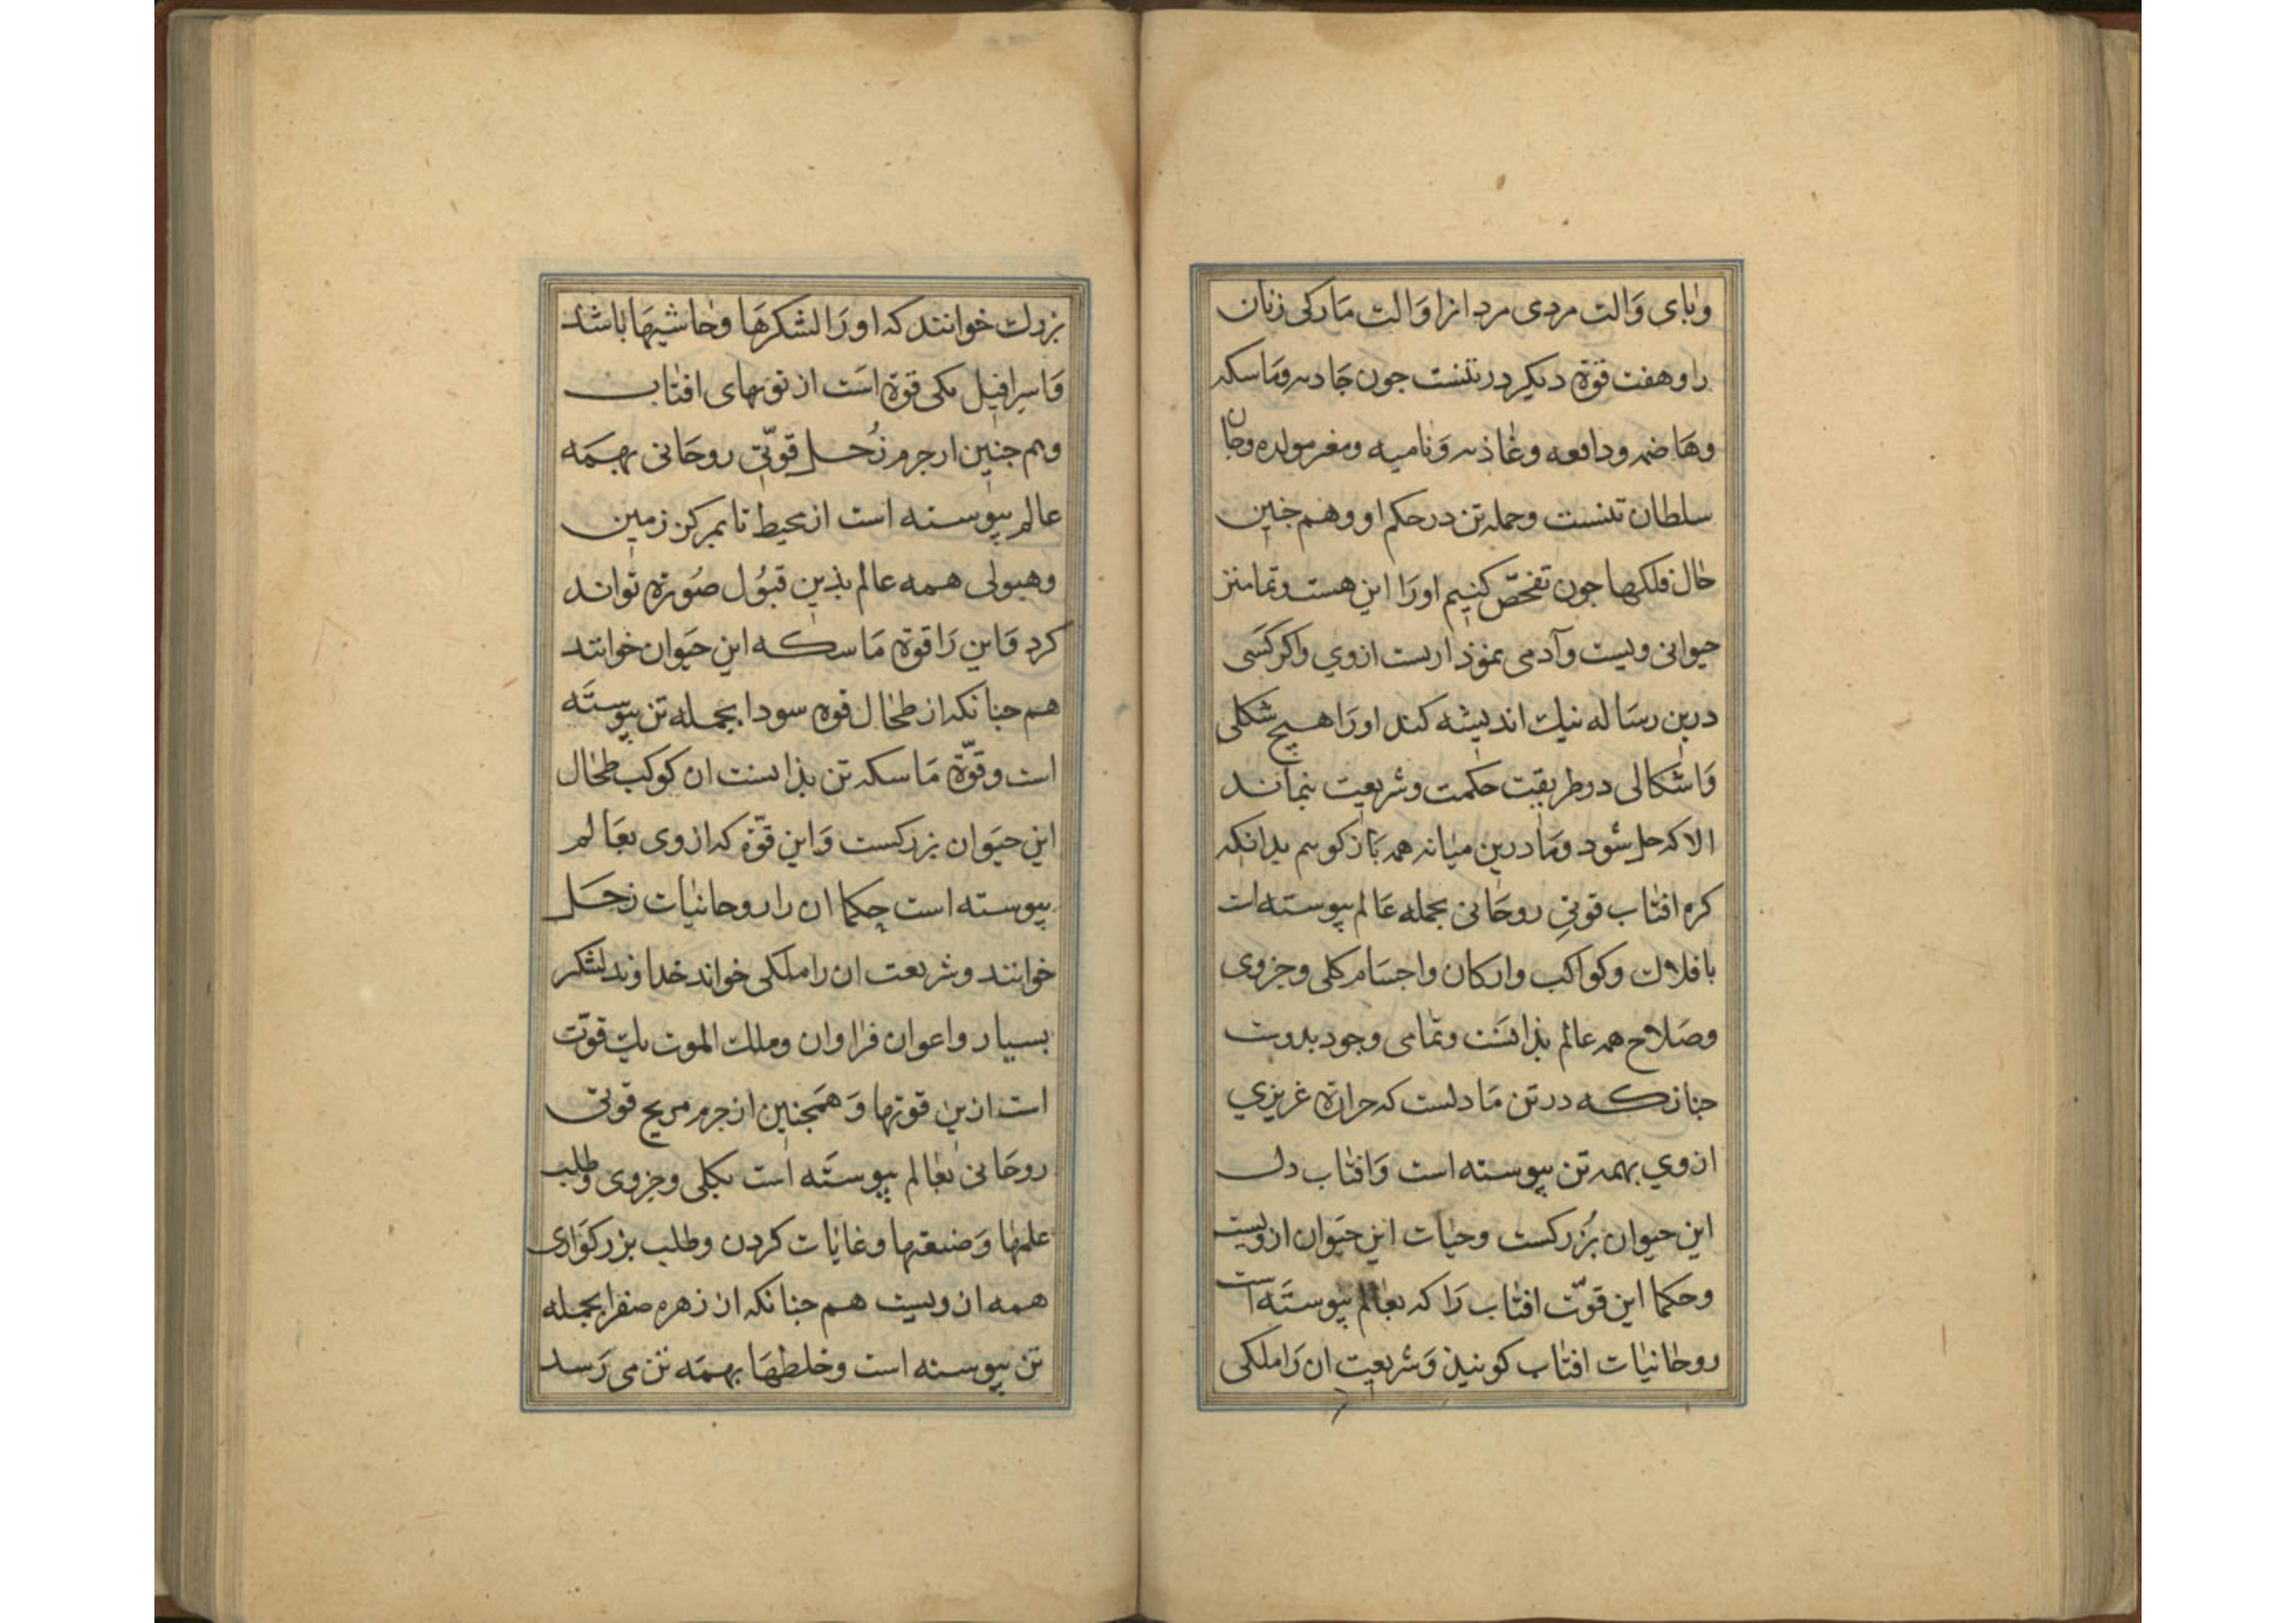 وبای وَالت مردی مردانرا وَالت مَارکی زنان
را وهفت قوّة دیکر در تنست جون جَاذبه ومَاسکه
وهَاضمه ودافعه وغَاذیه وَنامیه ومغیر مولده وجان
سلطان تنست وجمله تن در حکم او وهم جنین
حَال فلکها جون تفحّص کنیم اورَا این هست وتمامتر
حیوانی ویست وآدمی نموذاریست ازوی واکر کَسَی
درین رسَاله نیک اندیشه کند اورَا هیچ شکلی
وَاشکالی در طریقت حکمت وشریعت بنماند
الا که حل شود ومَا درین میَانه همه بَازکوییم بدانکه
کره افتاب قوتی روحَانی بجمله عَالم پیوسته است
بافلاک وکواکب وارکان واجسَام کلی وجزوی
وصَلاح همه عالم بذانسَت وتمامی وجود بدوست
جنانکه در تن مَا دلست که حرارة غریزي
ازوي بهمه تن پیوسته است وَافتاب دل
این حیوان بُزرکست وحیات این حیَوان ازویست
وحکما این قوّت افتاب رَا که بعالم پیوستَه است
روحانیات افتاب کویند وَشریعت ان رَا ملکی
بزرک خوانند که اورَا لشکرهَا وحَاشیهَا باشد
وَاسرافیل یکی قوة است از قوتهای افتاب
وهم جنین از جرم زُحل قوّتی روحَانی بهمَه
عالم پیوسته است از محیط تا بمرکز زمین
وهیولی همه عالم بذین قبُول صُورة تواند
کرد وَاین رَا قوة مَاسکه این حَیوان خوانند
هم جنانکه از طحَال قوه سودا بجمله تن پیوستَه
است وقوّة مَاسکه تن بذانست ان کوکب طحَال
این حیَوان بزرکست وَاین قوّة که ازوی بعَالم
پیوسته است حکما ان را روحانیات زحَل
خوانند وشریعت ان را ملکی خواند خداوند لشکر
بسیار واعوان فراوان وملک الموت یک قوّت
است ازین قوتها وَهَمجنین از جرم مریخ قوتی
روحَانی بعَالم پیوستَه است بکلی وجزوی وطلب
علمها وَصنعتها وغایات کردن وطلب بزرکوَاری
همه ازویست هم جنانکه از زهره صفرا بجمله
تن پیوسته است وخلطهَا بهمَه تن می رَسد